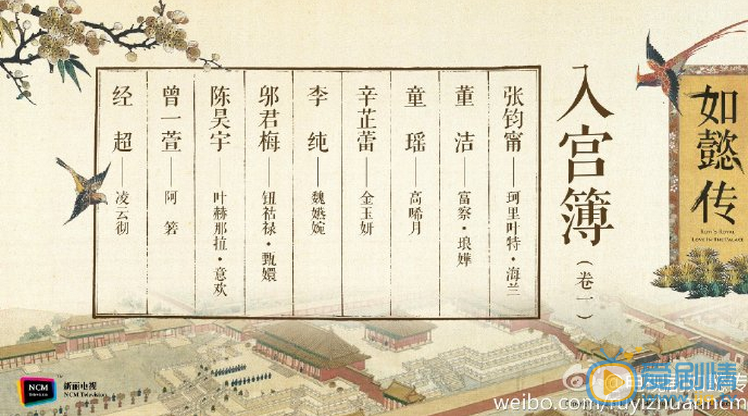 如懿传
RUYI'S ROYAL
LOVE IN THE PALACE
入宫簿（卷一）
张钧甯——珂里叶特·海兰
董洁——富察·琅嬅
童瑶——高晞月
辛芷蕾——金玉妍
李纯——魏嬿婉
邬君梅——钮祜禄·甄嬛
陈昊宇——叶赫那拉·意欢
曾一萱——阿箬
经超——凌云彻
NCM
新丽电视
NCM Television
爱剧情
weibo.com/ruyizhuanncm